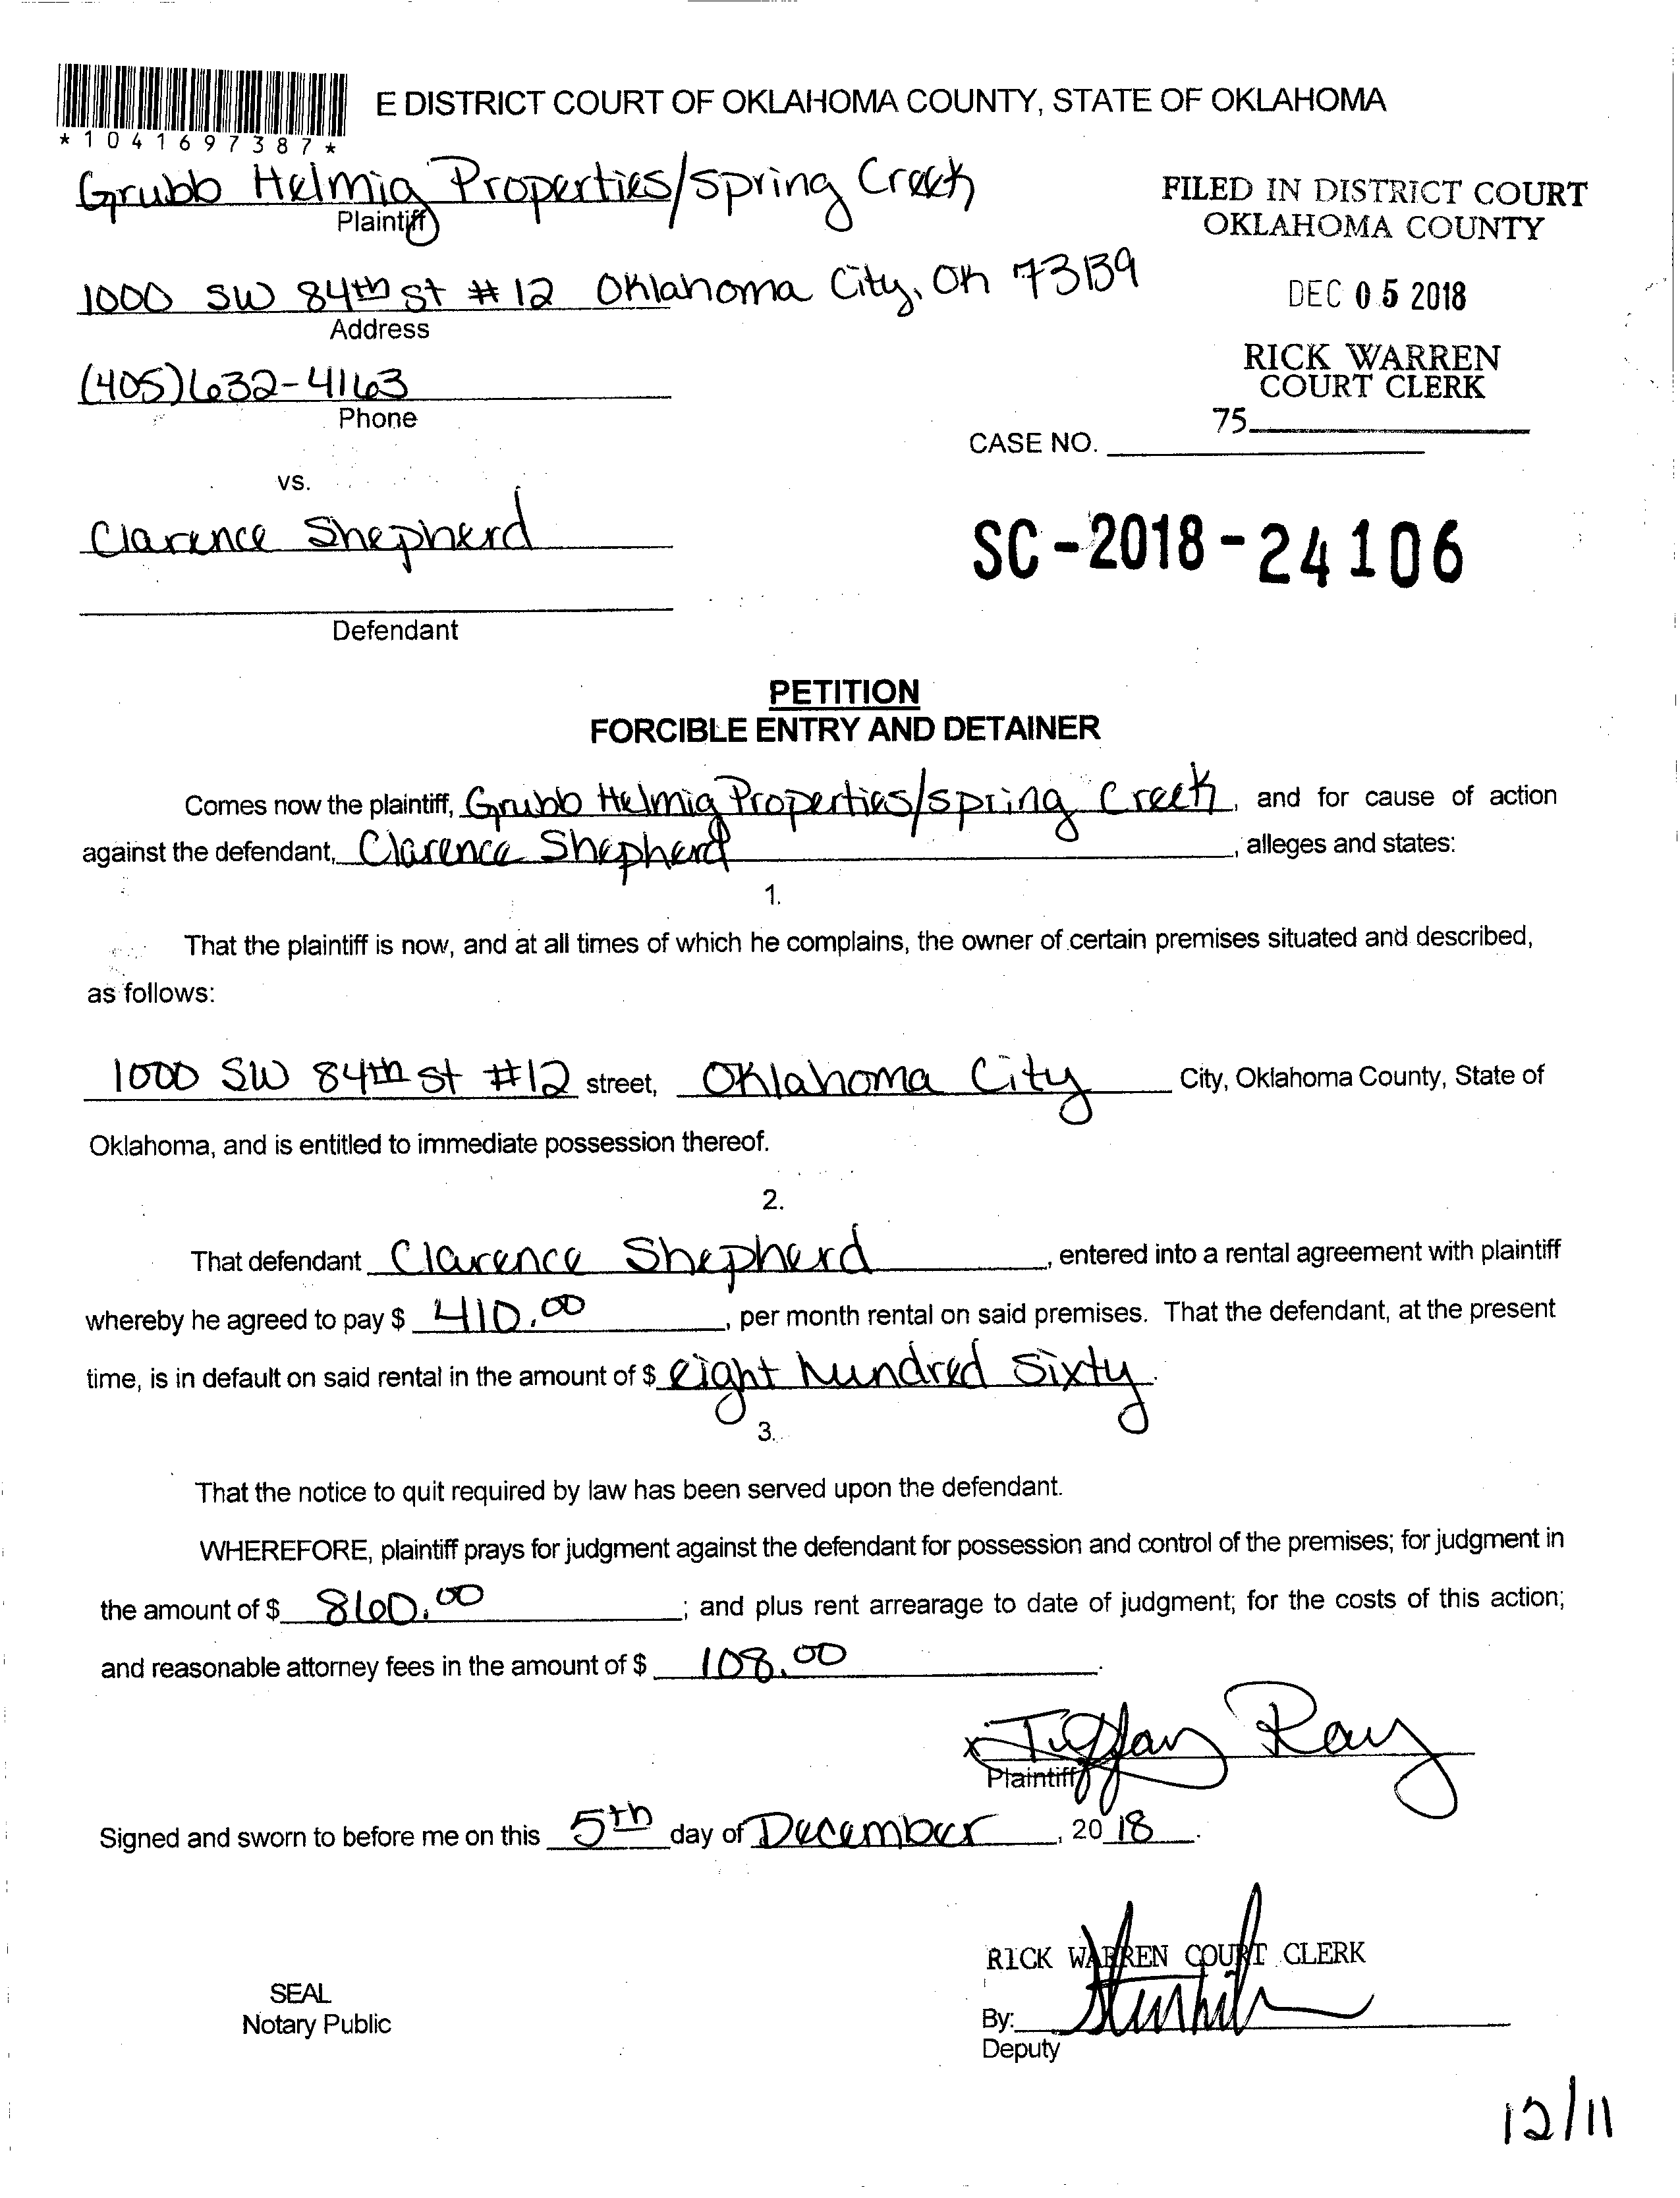 E DISTRICT COURT OF OKLAHOMA COUNTY, STATE OF OKLAHOMA
*1041697387*
Grubb Helmig Properties/Spring Creek
Plaintiff
FILED IN DISTRICT COURT
OKLAHOMA COUNTY
1000 SW 84th St #12 Oklahoma City, OK 73139
Address
DEC 05 2018
(405)632-4163
Phone
RICK WARREN
COURT CLERK
75
CASE NO.
vs.
Clarence Shepherd
SC-2018-24106
Defendant
PETITION
FORCIBLE ENTRY AND DETAINER
Comes now the plaintiff, Grubb Helmig Properties/Spring Creek, and for cause of action
against the defendant, Clarence Shepherd, alleges and states:
1.
That the plaintiff is now, and at all times of which he complains, the owner of certain premises situated and described,
as follows:
1000 SW 84th St #12 street, Oklahoma City City, Oklahoma County, State of
Oklahoma, and is entitled to immediate possession thereof.
2.
That defendant Clarence Shepherd, entered into a rental agreement with plaintiff
whereby he agreed to pay $ 410.00, per month rental on said premises. That the defendant, at the present
time, is in default on said rental in the amount of $ eight hundred sixty.
3.
That the notice to quit required by law has been served upon the defendant.
WHEREFORE, plaintiff prays for judgment against the defendant for possession and control of the premises; for judgment in
the amount of $ 860.00; and plus rent arrearage to date of judgment; for the costs of this action;
and reasonable attorney fees in the amount of $ 108.00.
x Tiffany Ray
Plaintiff
Signed and sworn to before me on this 5th day of December, 2018.
RICK WARREN COURT CLERK
SEAL
Notary Public
By:
Deputy
12/11